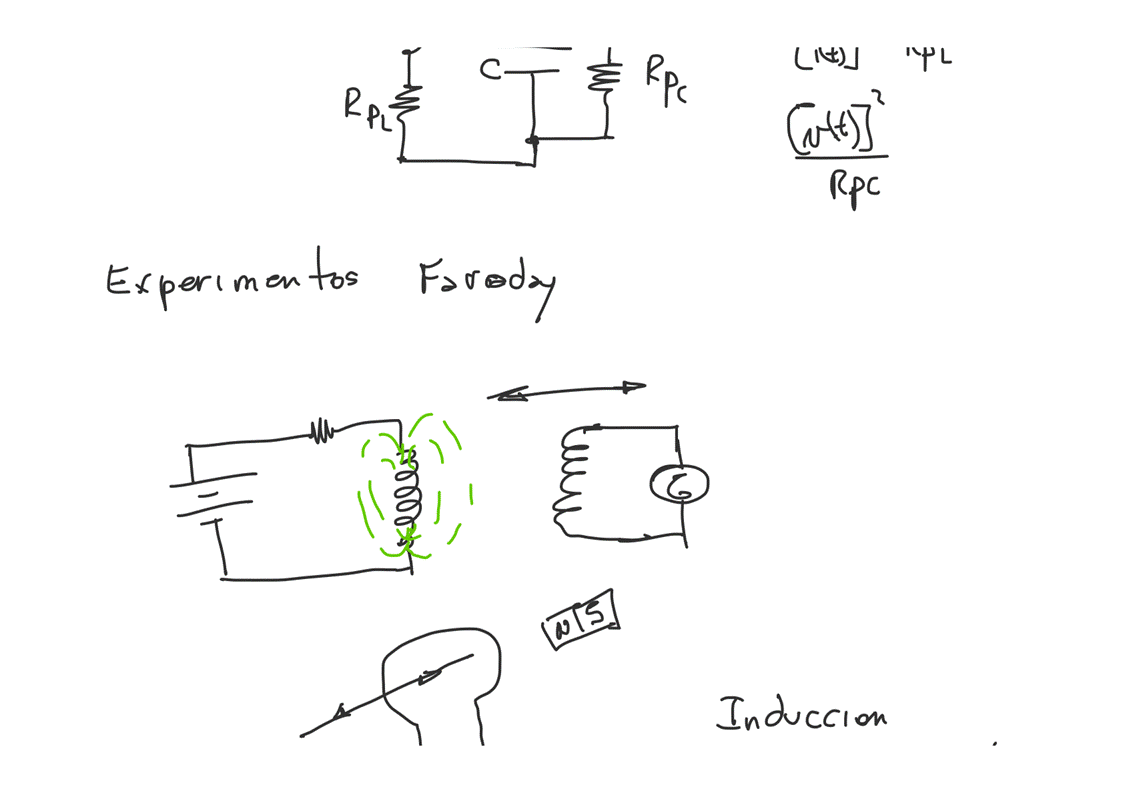 C
R_PL
R_PC
[v(t)]²
RPC
Experimentos Faraday
G
N S
Induccion